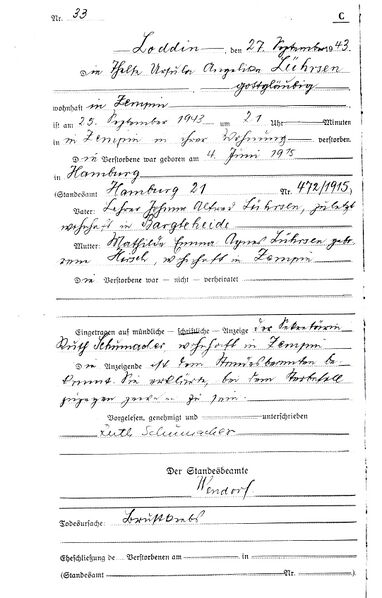 Nr. 33 C
Loddin, den 27. September 1943.
Die Thelte Ursula Angelika Lührsen
gottgläubig
wohnhaft in Zempin
ist am 25. September 1943 um 21 Uhr Minuten
in Zempin in ihrer Wohnung verstorben.
Die Verstorbene war geboren am 4. Juni 1915
in Hamburg
(Standesamt Hamburg 21 Nr. 472/1915)
Vater: Lehrer Johann Alfred Lührsen, zuletzt
wohnhaft in Bargteheide
Mutter: Mathilde Emma Agnes Lührsen gebo-
rene Hirsch, wohnhaft in Zempin
Die Verstorbene war – nicht – verheiratet
Eingetragen auf mündliche – schriftliche – Anzeige der Sekretärin
Ruth Schumacher, wohnhaft in Zempin
Die Anzeigende ist dem Standesbeamten be-
kannt. Sie erklärte, bei dem Sterbefall
zugegen gewesen zu sein.
Vorgelesen, genehmigt und unterschrieben
Ruth Schumacher
Der Standesbeamte
Wendorf
Todesursache: Brustkrebs
Eheschließung de Verstorbenen am in
(Standesamt Nr. )